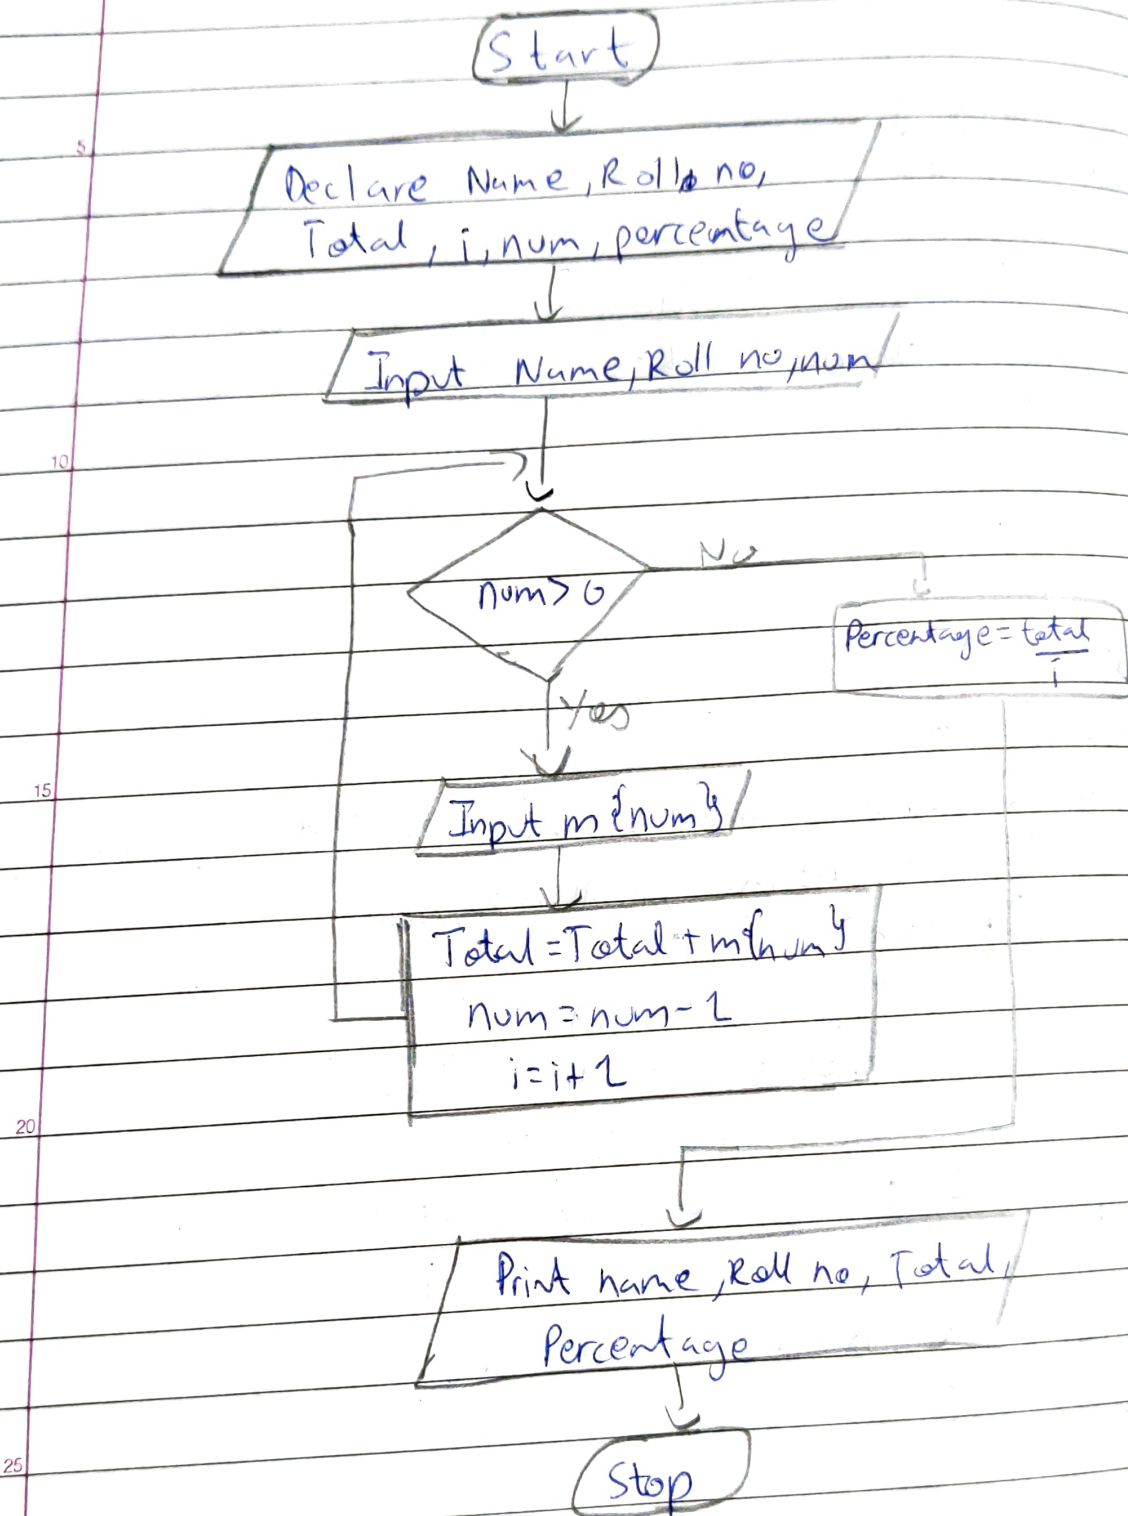 Start
5
Declare Name, Roll no,
Total, i, num, percentage
Input Name, Roll no, num
10
num > 0
No
Percentage = total
i
Yes
15
Input m{num}
Total = Total + m{num}
num = num - 1
i = i + 1
20
Print name, Roll no, Total,
Percentage
25
Stop